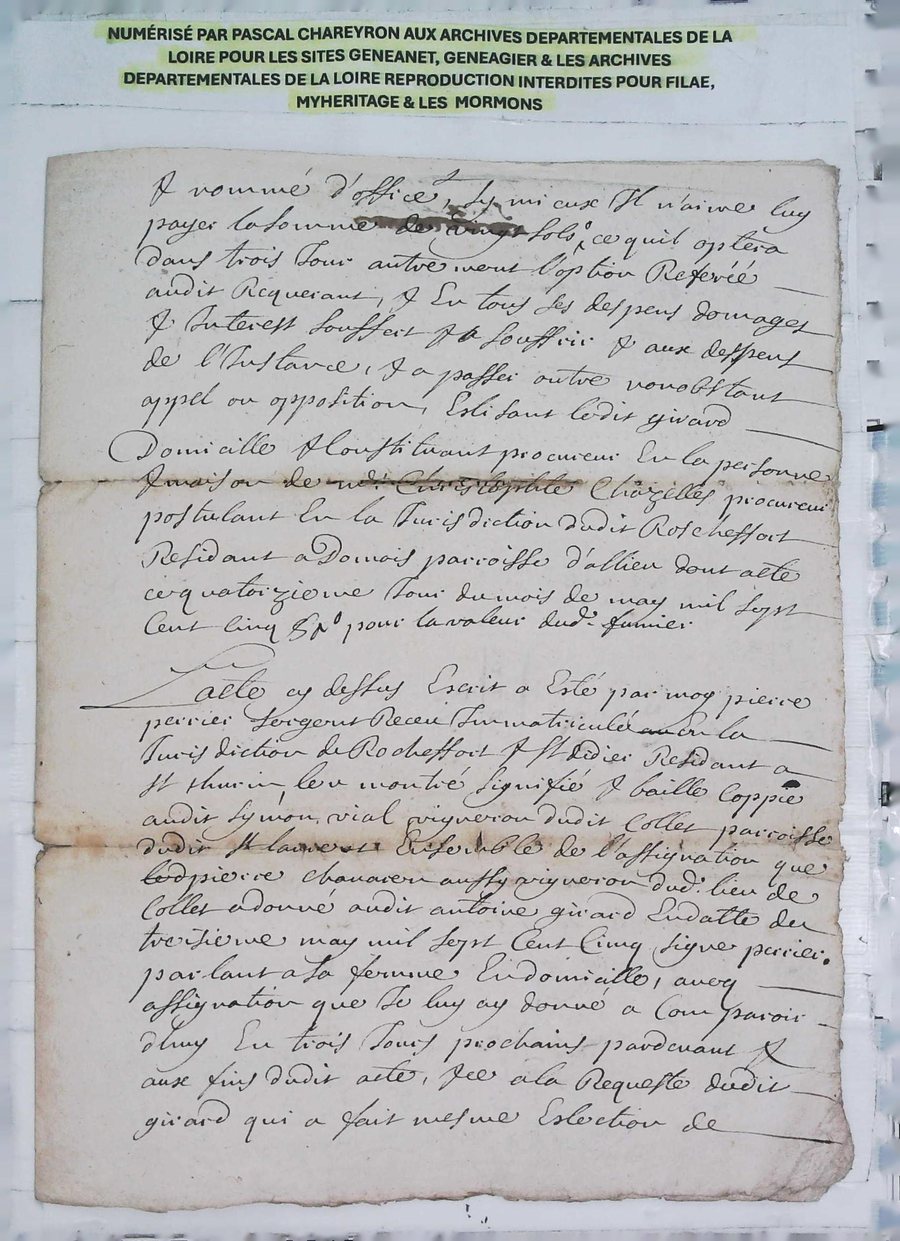 NUMÉRISÉ PAR PASCAL CHAREYRON AUX ARCHIVES DEPARTEMENTALES DE LA
LOIRE POUR LES SITES GENEANET, GENEAGIER & LES ARCHIVES
DEPARTEMENTALES DE LA LOIRE REPRODUCTION INTERDITES POUR FILAE,
MYHERITAGE & LES MORMONS
& nommé d'office, sy mieux Il n'aime luy
payer la somme de vingt sols, ce quil optera
dans trois Jour autrement l'option Referée
audit Requerant, & En tous ses despens domages
& Interest souffert & a souffrir & aux despens
de l'Instance, & a passer outre nonobstant
appel ou opposition, Eslisant ledit girard
Domicille & Constituant procureur En la personne
& maison de Chazelles procureur
postulant En la Jurisdiction dudit Rocheffort
Residant a Domois parroisse d'allieu dont acte
ce quatorzieme Jour du mois de may mil sept
Cent Cinq pour la valeur dud: fumier
L'acte cy dessus Escrit a Esté par moy pierre
perrier sergent Receu Immatriculé En la
Jurisdiction de Rocheffort & St didier Residant a
St thurin, leu montré signifié & baille Coppie
audit symon vial vigneron dudit Collet parroisse
dudit St laurent Ensemble de l'assignation que
led pierre chanaren aussy vigneron dud: lieu de
Collet a donné audit antoine girard En datte du
treisieme may mil sept Cent Cinq signe perrier.
parlant a sa femme En domicille, avec
assignation que Je luy ay donné a Comparoir
d'huy En trois Jours prochains pardevant &
aux fins dudit acte, & ce a la Requeste dudit
girard qui a fait mesme Eslection de